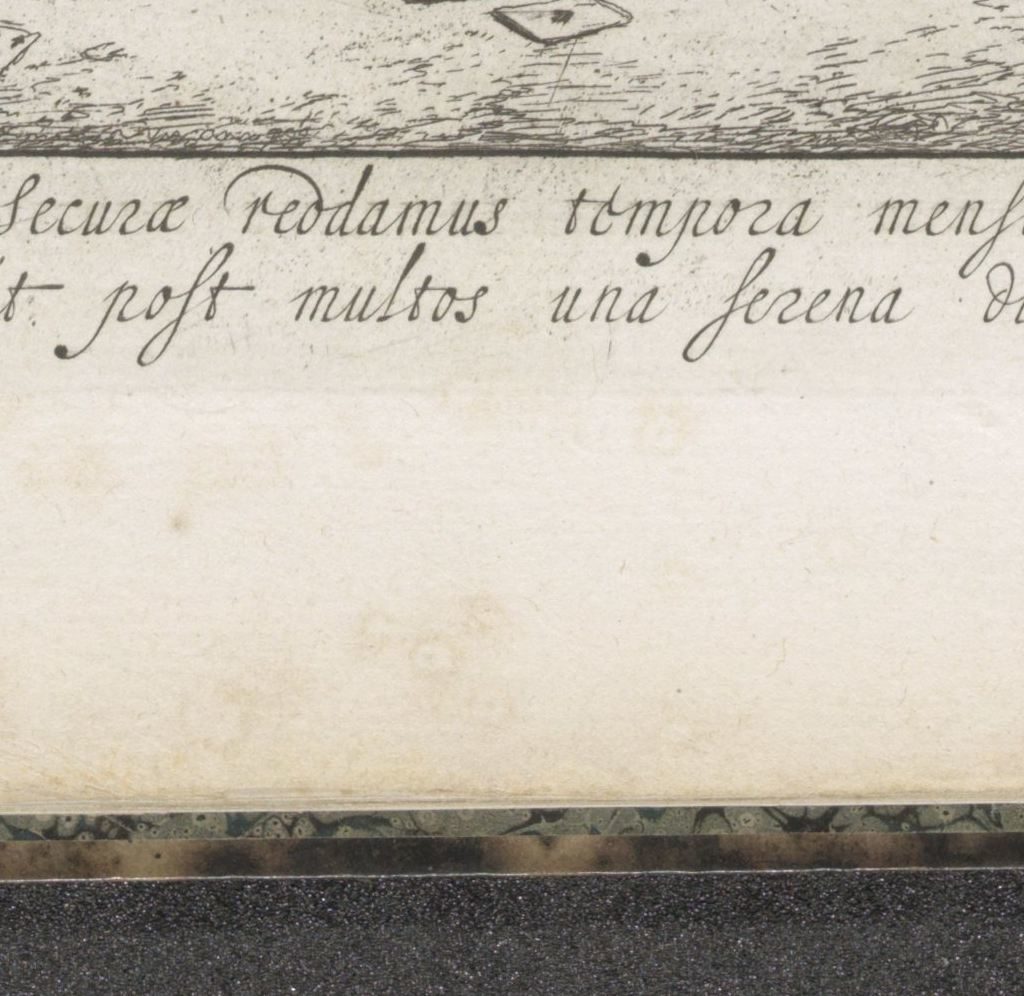 securæ reddamus tempora mens
t post multos una serena di